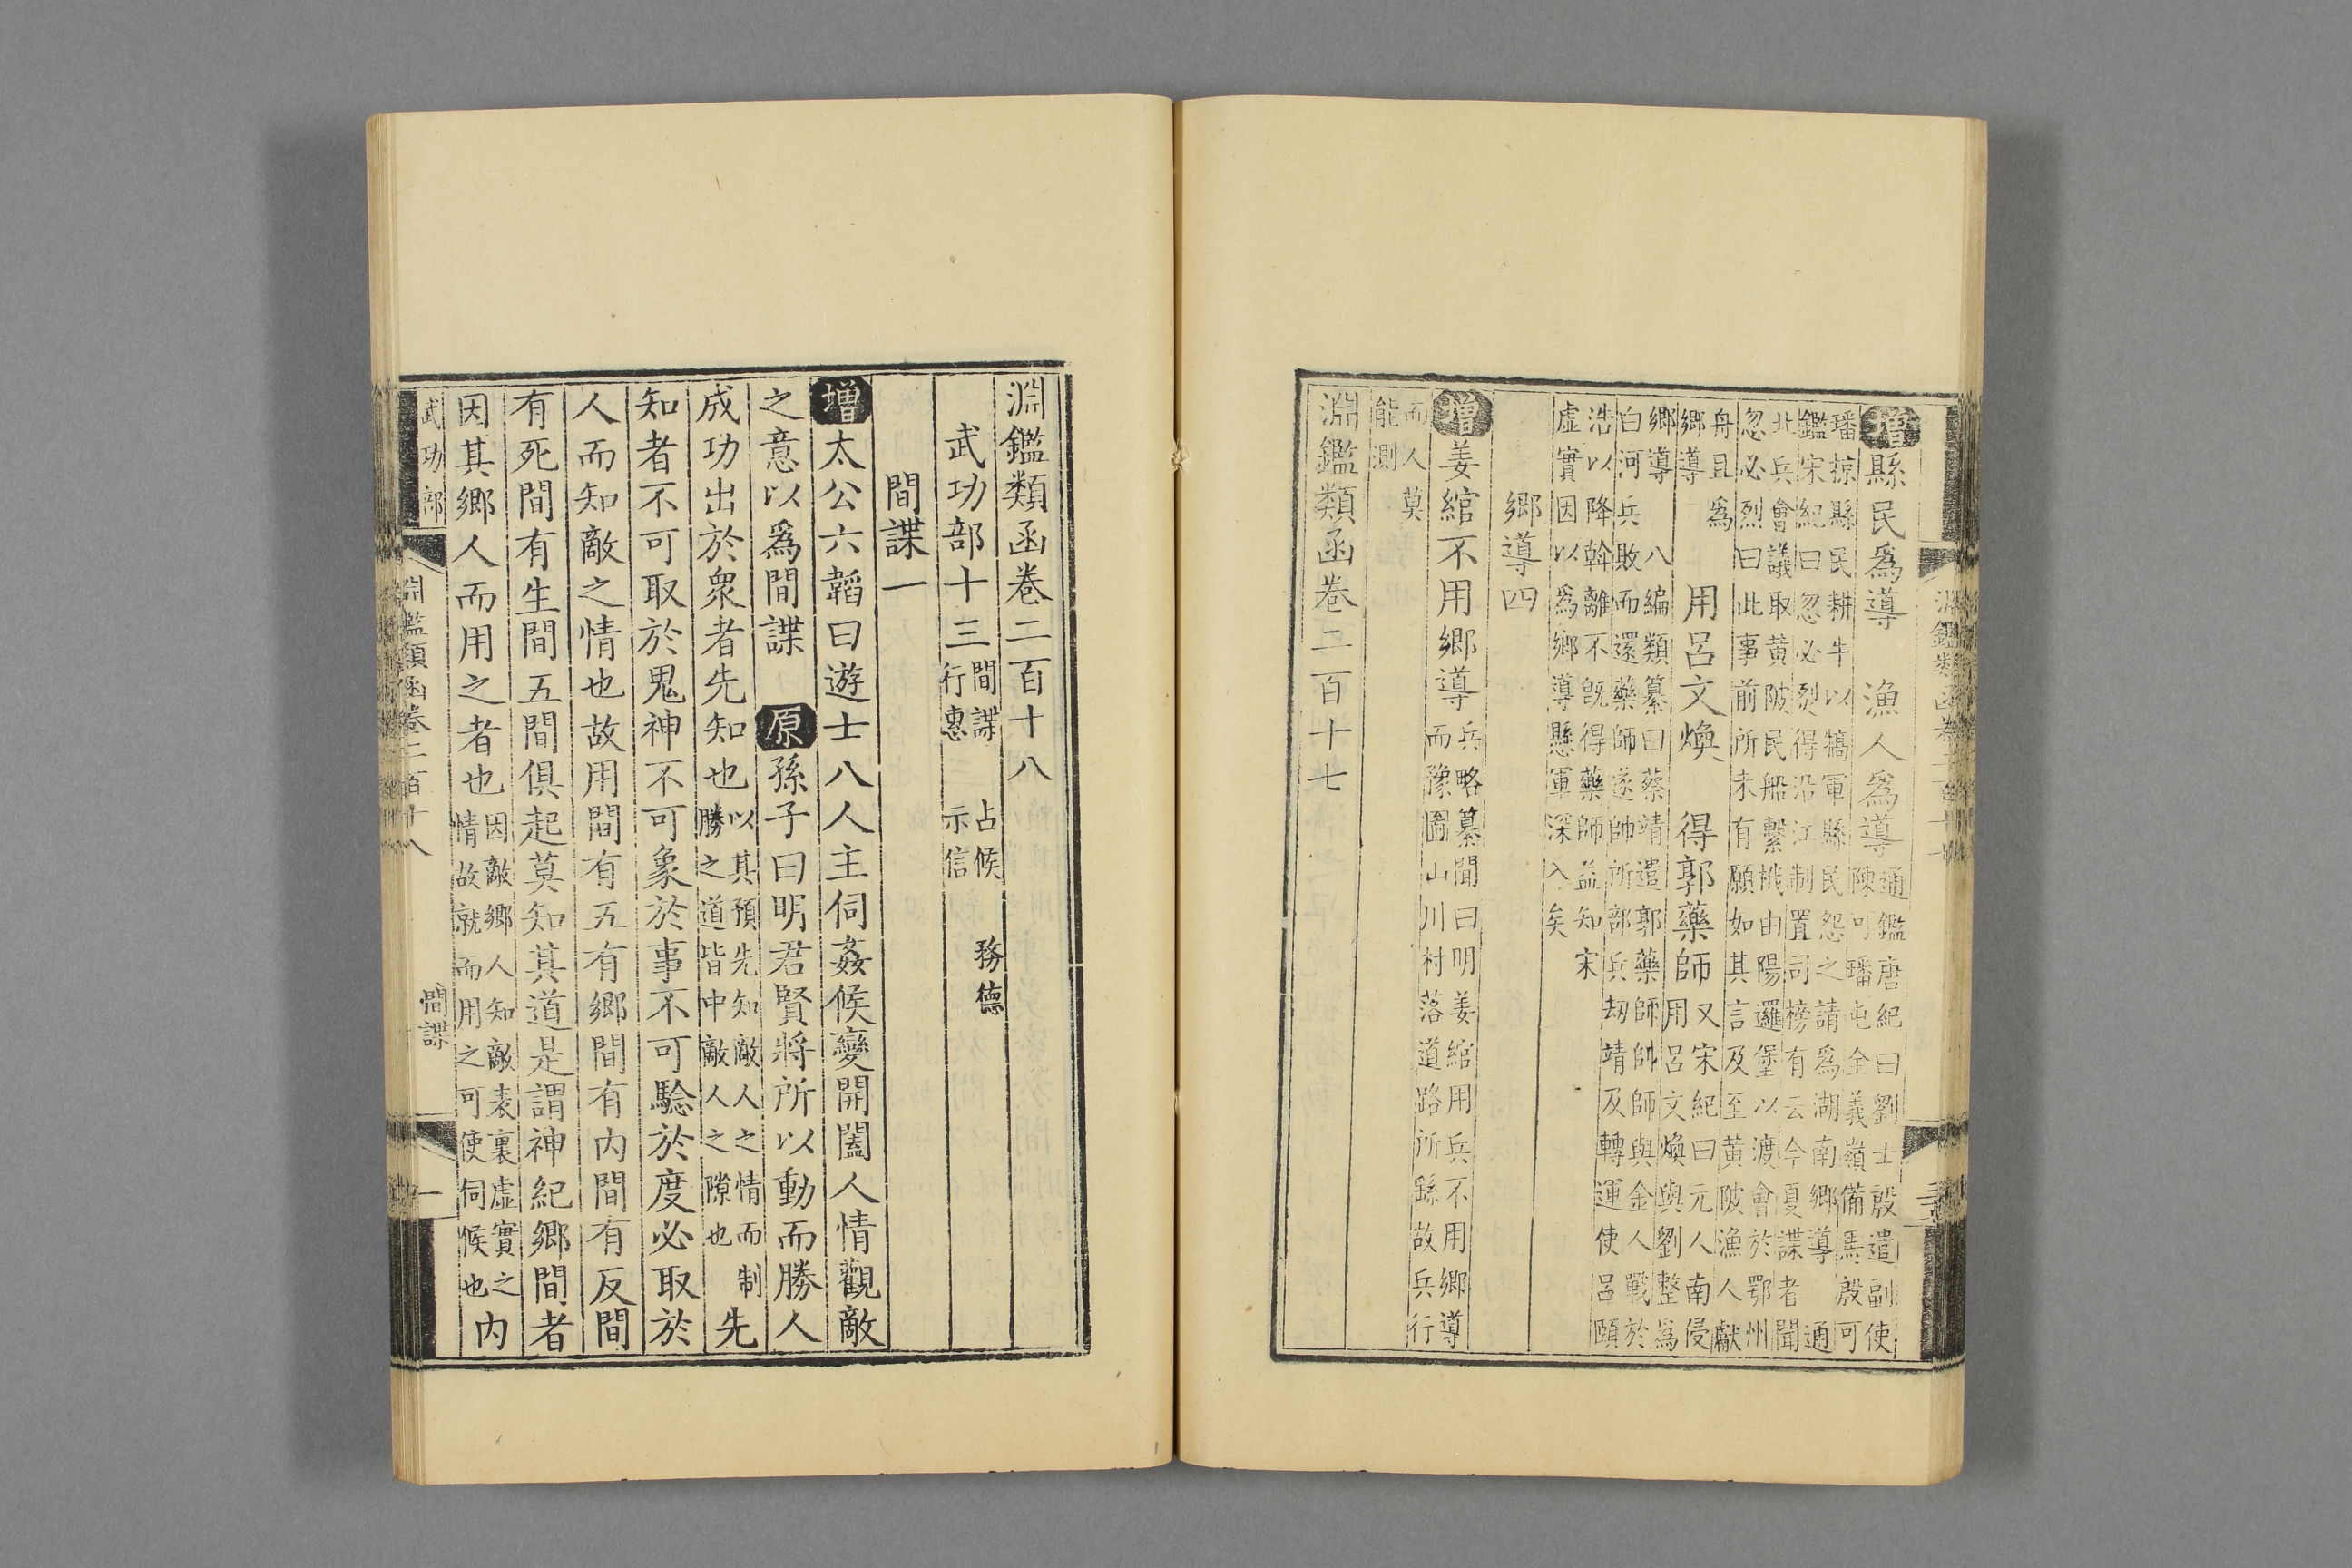 淵鑑類函卷二百十七
增縣民爲導　漁人爲導
通鑑唐紀曰劉士殷遣副使
陳可璠屯全義嶺備馬殷可
璠掠縣民耕牛以犒軍縣民怨之請爲湖南鄉導　通
鑑宋紀曰忽必烈得沿江制置司榜有云今夏諜者聞
北兵會議取黃陂民船繫栰由陽邏堡以渡會於鄂州
忽必烈曰此事前所未有願如其言及至黃陂漁人獻
舟且爲
鄉導
用呂文煥　得郭藥師
又宋紀曰元人南侵
用呂文煥與劉整爲
鄉導　八編類纂曰蔡靖遣郭藥師帥師與金人戰於
白河兵敗而還藥師遂帥所部兵劫靖及轉運使呂頤
浩以降斡離不既得藥師益知宋
虛實因以爲鄉導懸軍深入矣
鄉導四
增姜綰不用鄉導
兵略纂聞曰明姜綰用兵不用鄉導
而豫圖山川村落道路所繇故兵行
而人莫
能測
淵鑑類函卷二百十七
淵鑑類函卷二百十八
武功部十三
間諜　占候　務德
行惠　示信
間諜一
增太公六韜曰遊士八人主伺姦候變開闔人情觀敵
之意以爲間諜　原孫子曰明君賢將所以動而勝人
成功出於衆者先知也
以其預先知敵人之情而制
勝之道皆中敵人之隙也
先
知者不可取於鬼神不可象於事不可驗於度必取於
人而知敵之情也故用間有五有鄉間有内間有反間
有死間有生間五間俱起莫知其道是謂神紀鄉間者
因其鄉人而用之者也
因敵鄉人知敵表裏虛實之
情故就而用之可使伺候也
内
武功部
淵鑑類函卷二百十八
間諜
一